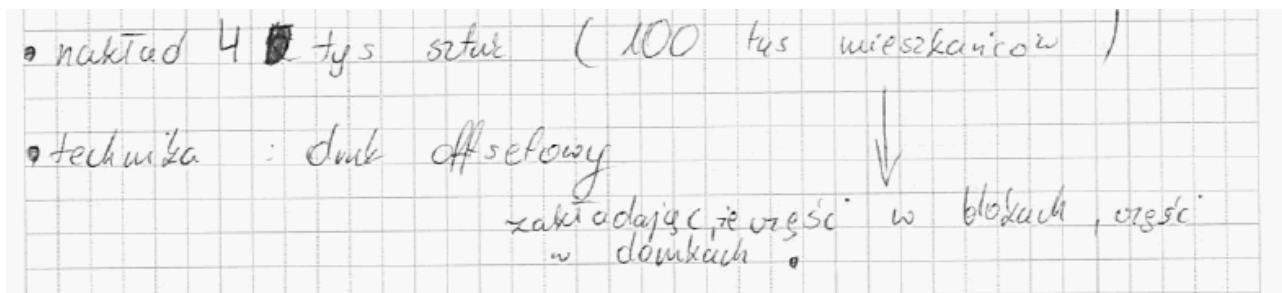 • nakład 4 tys sztuk ( 100 tys mieszkańców )
• technika : druk offsetowy
zakładając, że część w blokach, część
w domkach.